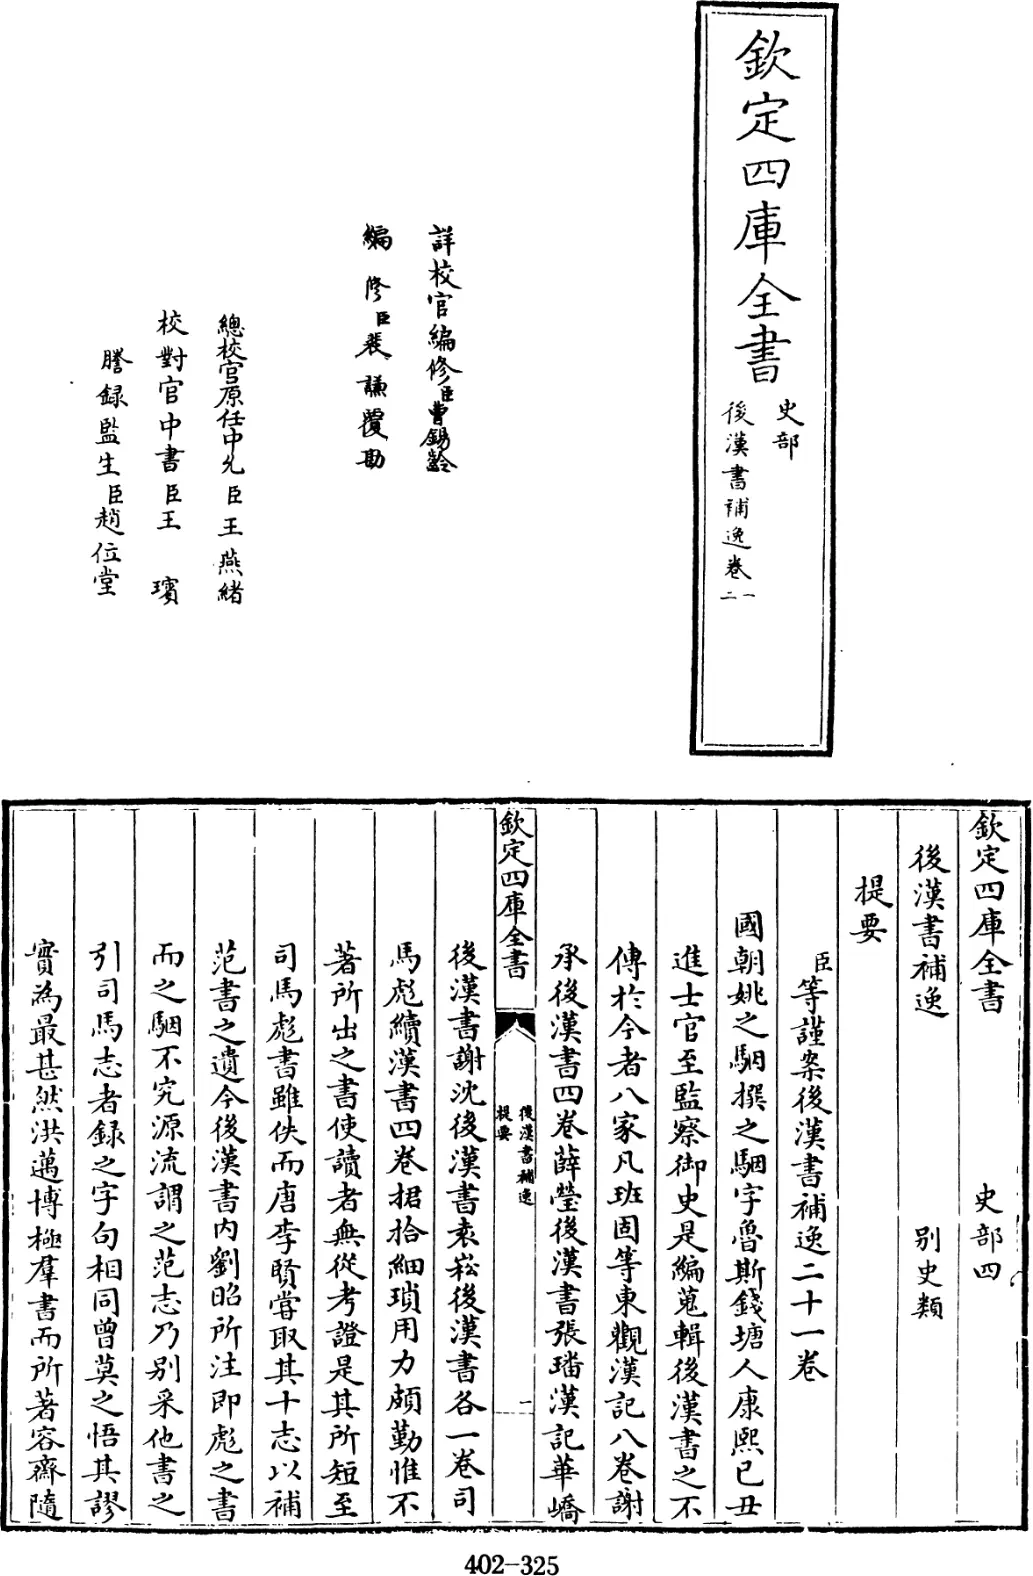 欽定四庫全書
史部
後漢書補逸卷一
二
詳校官編修臣曹錫齡
編修臣裴謙覆勘
總校官原任中允臣王燕緒
校對官中書臣王璸
謄録監生臣趙位堂
欽定四庫全書 史部四
後漢書補逸 别史類
提要
臣等謹案後漢書補逸二十一卷
國朝姚之駰撰之駰字魯斯錢塘人康熙己丑
進士官至監察御史是編蒐輯後漢書之不
傳於今者八家凡班固等東觀漢記八卷謝
承後漢書四卷薛瑩後漢書張璠漢記華嶠
欽定四庫全書
後漢書補逸
提要
一
後漢書謝沈後漢書袁崧後漢書各一卷司
馬彪續漢書四卷捃拾細瑣用力頗勤惟不
著所出之書使讀者無從考證是其所短至
司馬彪書雖佚而唐李賢嘗取其十志以補
范書之遺今後漢書内劉昭所注即彪之書
而之駰不究源流謂之范志乃别采他書之
引司馬志者録之字句相同曾莫之悟其謬
實為最甚然洪邁博極羣書而所著容齋隨
402-325